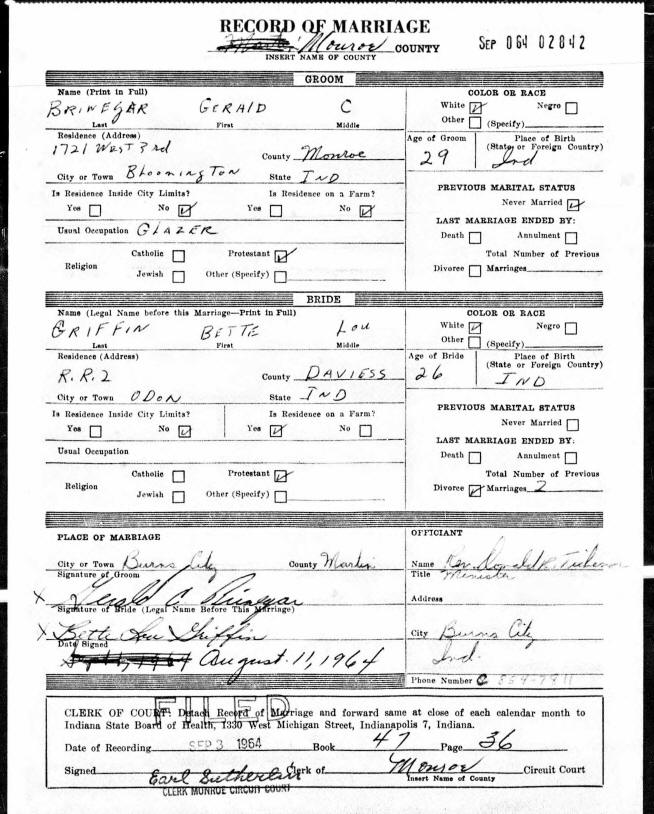 RECORD OF MARRIAGE
Monroe COUNTY
SEP 064 02842
INSERT NAME OF COUNTY
GROOM
Name (Print in Full)
BRINEGAR GERALD C
Last First Middle
COLOR OR RACE
White Negro
Other (Specify)
Residence (Address)
1721 WEST 3rd County Monroe
Age of Groom Place of Birth
(State or Foreign Country)
29 Ind
City or Town Bloomington State IND
Is Residence Inside City Limits? Is Residence on a Farm?
Yes No Yes No
PREVIOUS MARITAL STATUS
Never Married
LAST MARRIAGE ENDED BY:
Usual Occupation GLAZER
Death Annulment
Religion
Catholic Protestant
Jewish Other (Specify)
Total Number of Previous
Divorce Marriages
BRIDE
Name (Legal Name before this Marriage—Print in Full)
GRIFFIN BETTE Lou
Last First Middle
COLOR OR RACE
White Negro
Other (Specify)
Residence (Address)
R.R.2 County DAVIESS
Age of Bride Place of Birth
(State or Foreign Country)
26 IND
City or Town ODON State IND
Is Residence Inside City Limits? Is Residence on a Farm?
Yes No Yes No
PREVIOUS MARITAL STATUS
Never Married
LAST MARRIAGE ENDED BY:
Usual Occupation
Death Annulment
Religion
Catholic Protestant
Jewish Other (Specify)
Total Number of Previous
Divorce Marriages 2
PLACE OF MARRIAGE
City or Town Burns City County Martin
Signature of Groom
X Gerald C Brinegar
Signature of Bride (Legal Name Before This Marriage)
X Bette Lou Griffin
Date Signed
August 11, 1964
OFFICIANT
Name Rev. Donald R.
Title Minister
Address
City Burns City
Ind.
Phone Number
FILED
CLERK OF COURT: Detach Record of Marriage and forward same at close of each calendar month to
Indiana State Board of Health, 1330 West Michigan Street, Indianapolis 7, Indiana.
Date of Recording SEP 3 1964 Book 47 Page 36
Signed Earl Sutherlin Clerk of Monroe Circuit Court
Insert Name of County
CLERK MONROE CIRCUIT COURT